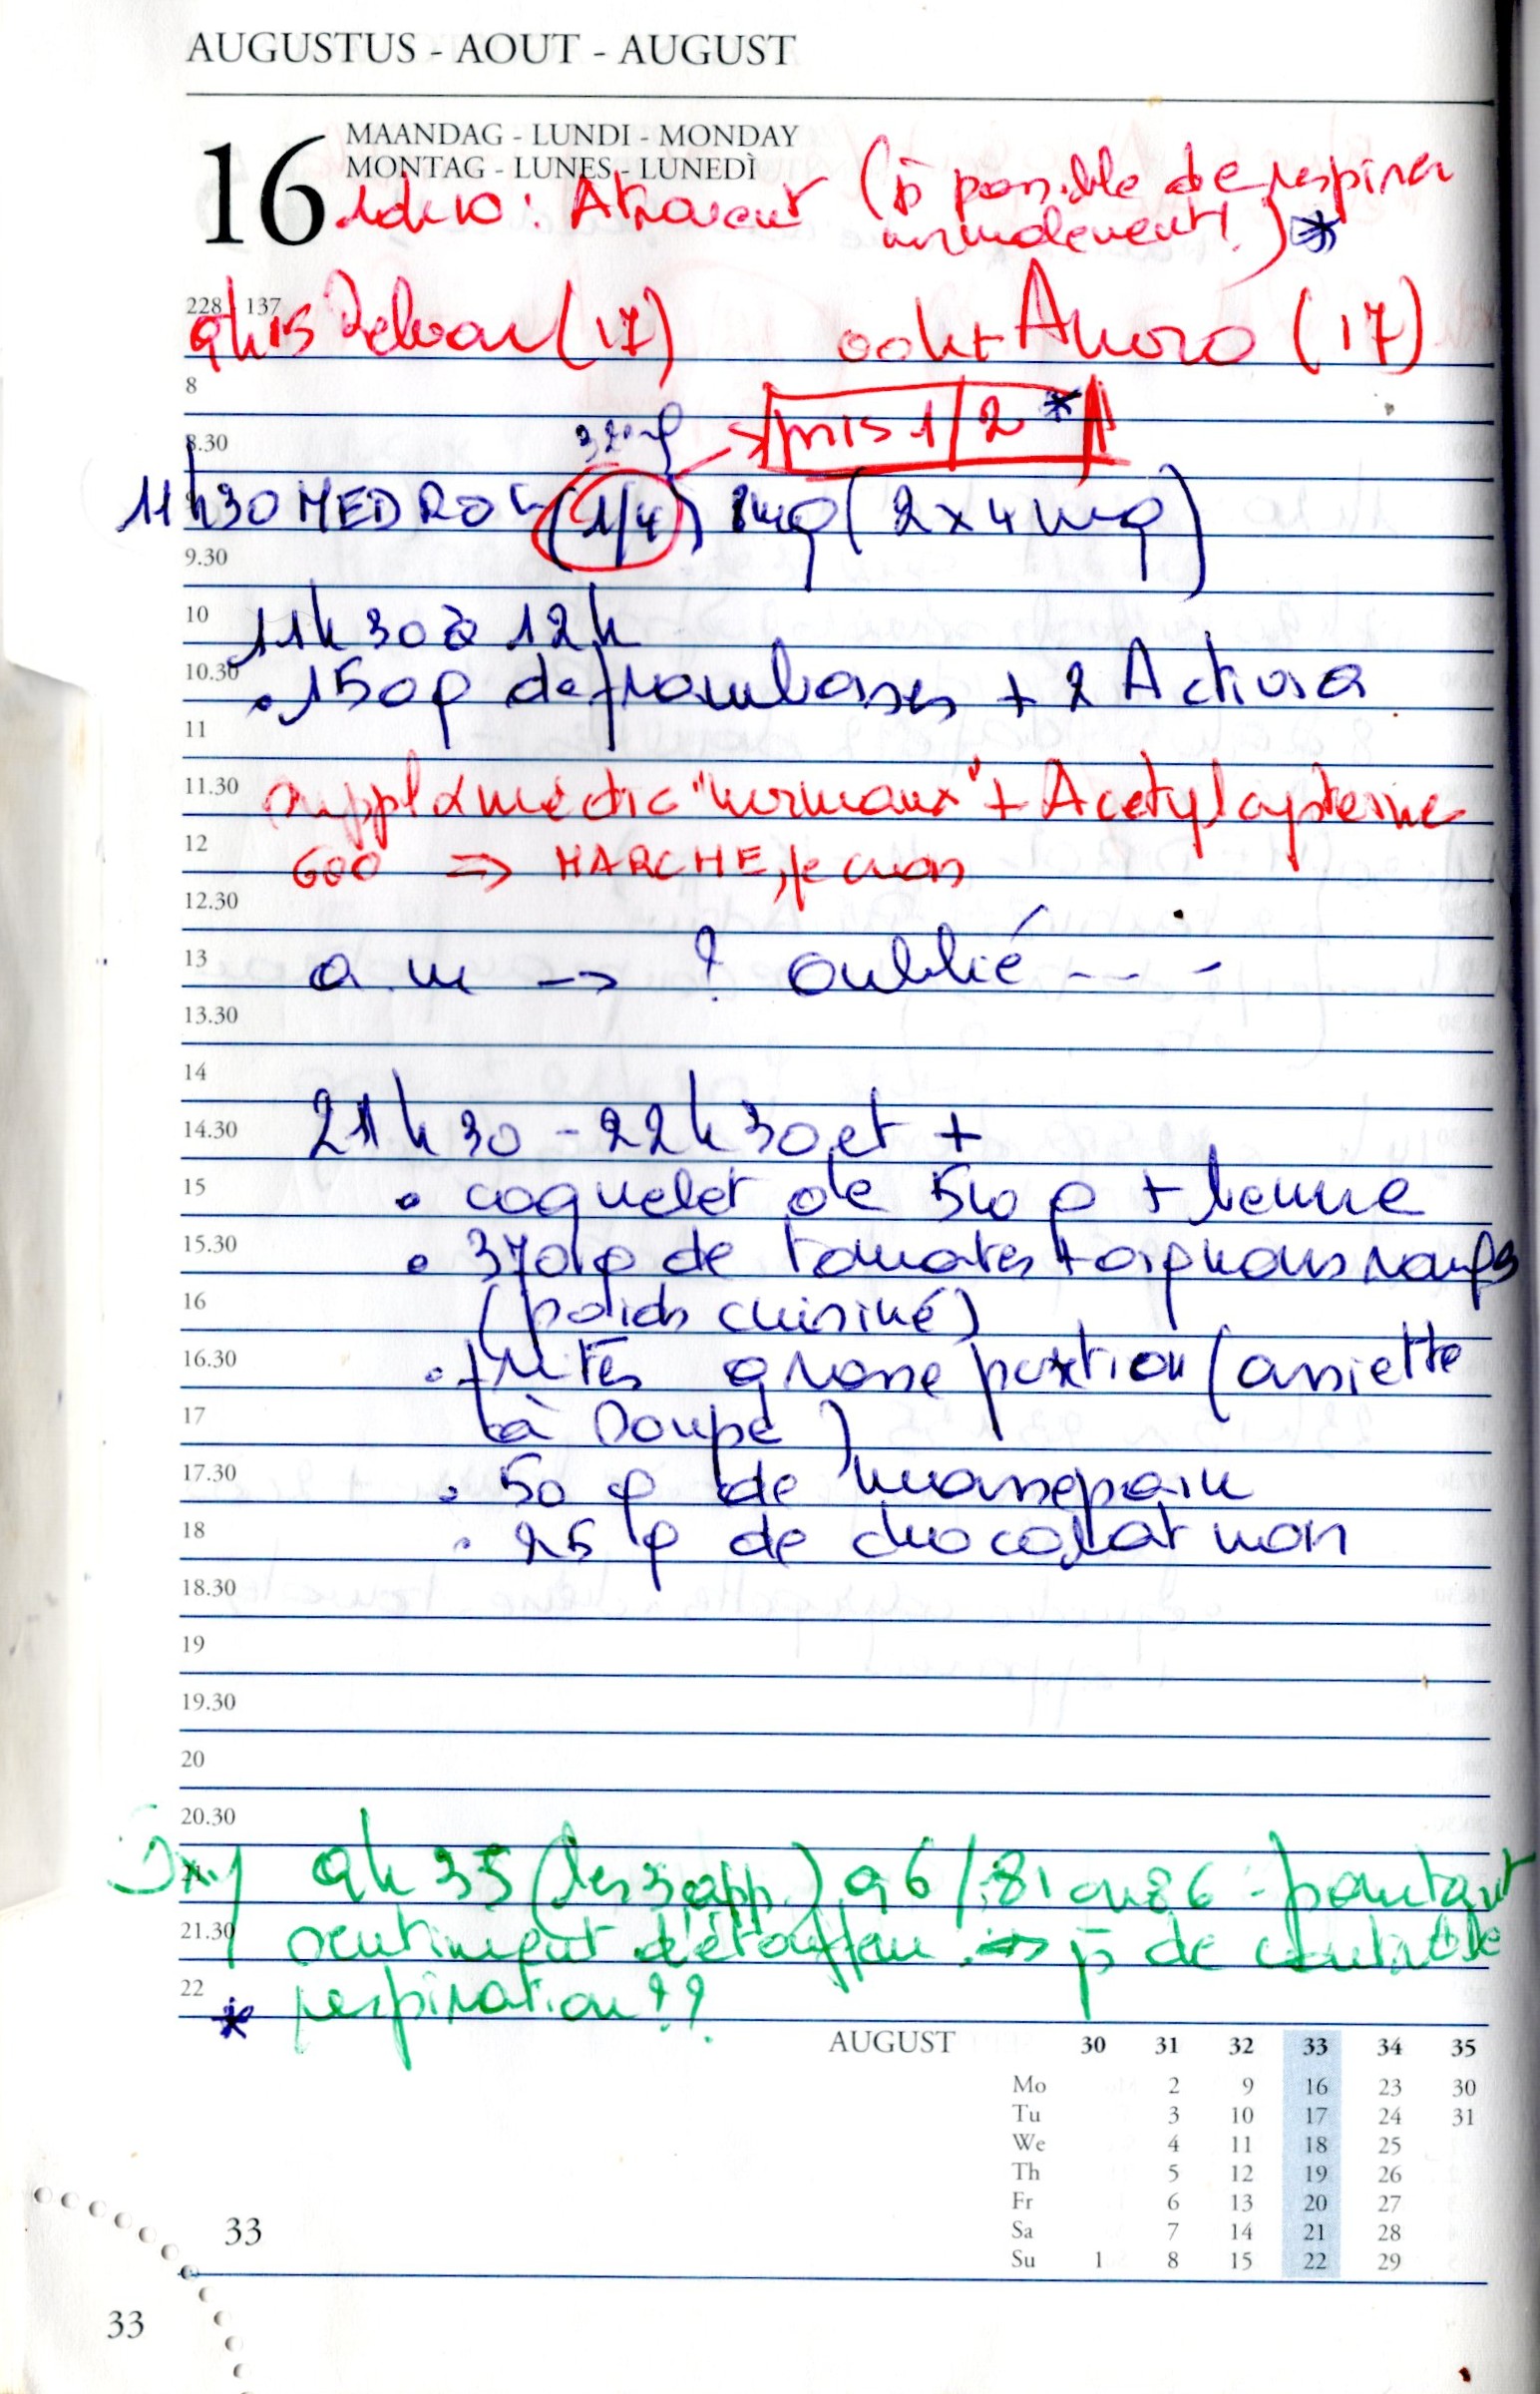 AUGUSTUS - AOUT - AUGUST
16
MAANDAG - LUNDI - MONDAY
MONTAG - LUNES - LUNEDÌ
: Atrovent (p̄ possible de respirer
normalement! ) *
228 137
9h15 Relvar (17) Anoro (17)
8
mis 1/2 *
8.30
32mg
11h30 MEDROL (1/4) 8mg (2x4mg)
9.30
10
11h30 à 12h
10.30
. 150g de framboises + 2 Activia
11
11.30
suppl & médic "normaux" + Acetylcysteine
12
600 => MARCHE, je crois
12.30
13
a.m -> ? oublié - - - -
13.30
14
14.30
21h30 - 22h30 et +
15
. coquelet de 510 g + beurre
15.30
. 370 g de tomates + oignons rouges
16
(poids cuisiné)
16.30
. frites grosse portion (assiette
17
à soupe)
17.30
. 50 g de massepain
18
. 25 g de chocolat noir
18.30
19
19.30
20
20.30
Oxy 9h35 (les 3 app.) 96/81 ou 86 - pourtant
21
21.30
sentiment d'étouffer => p̄ de contrôle
22
* respiration ??
AUGUST 30 31 32 33 34 35
Mo 2 9 16 23 30
Tu 3 10 17 24 31
We 4 11 18 25
Th 5 12 19 26
Fr 6 13 20 27
Sa 7 14 21 28
Su 1 8 15 22 29
33
33